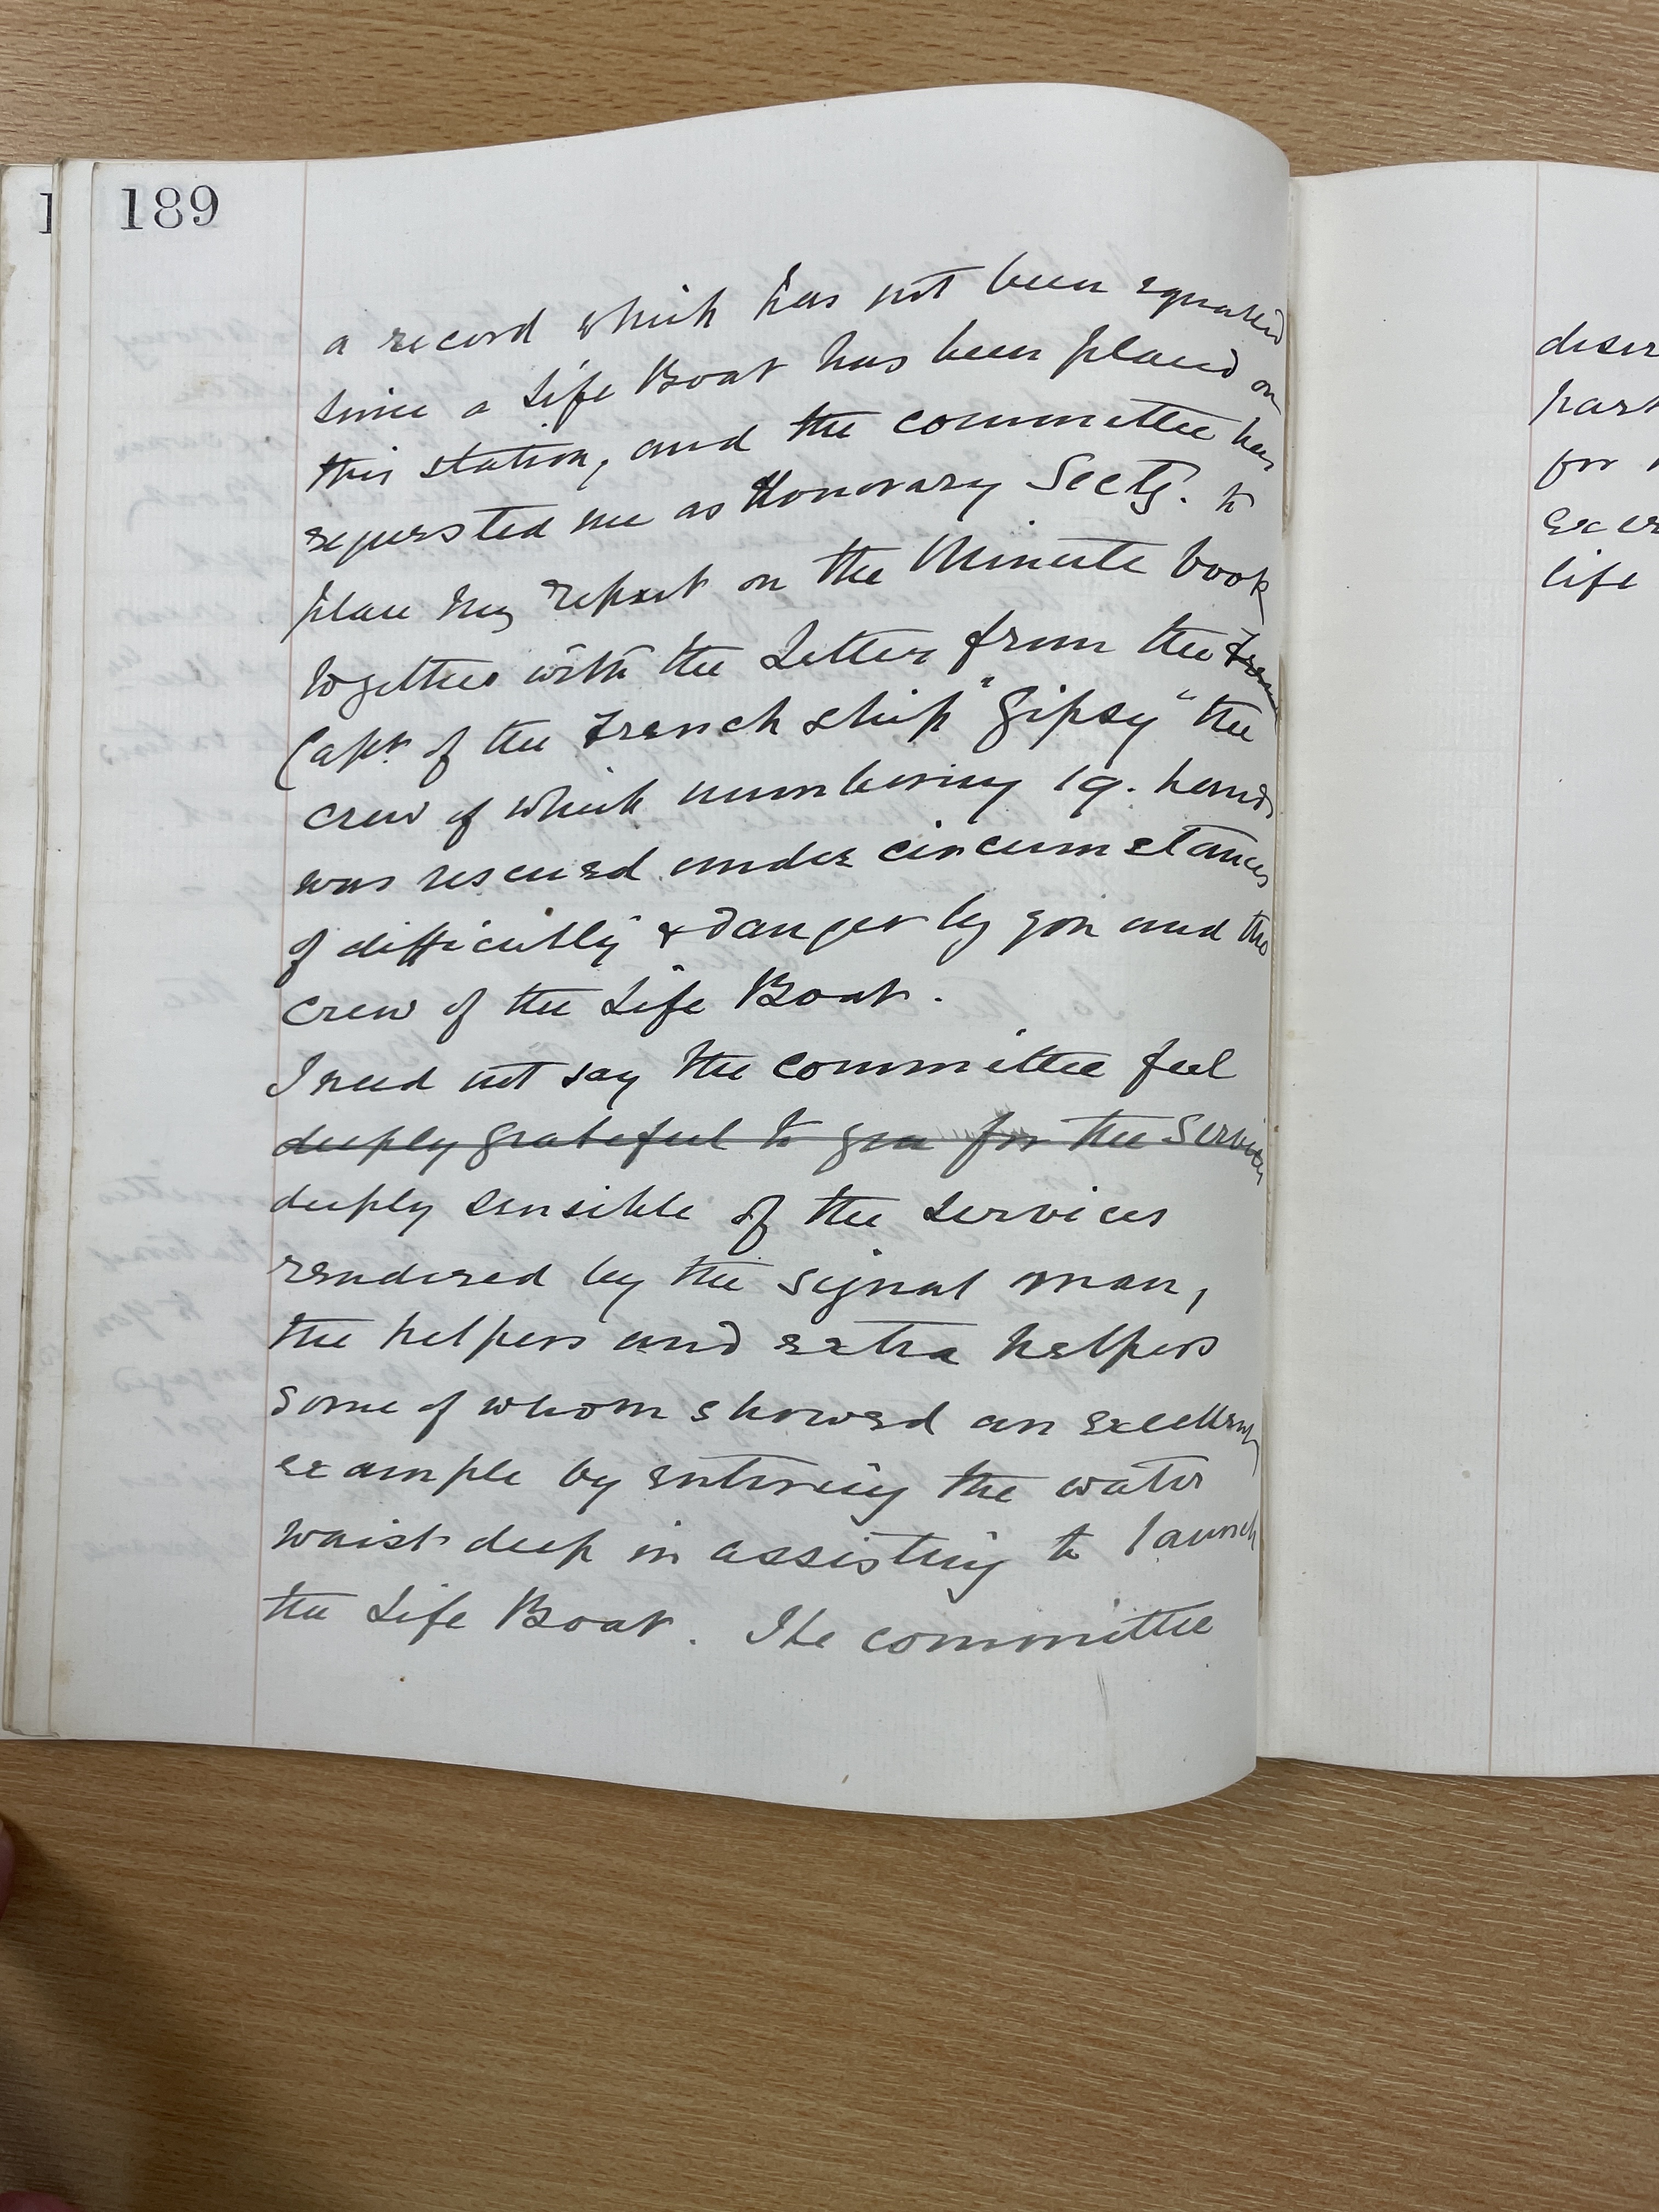 189
a record which has not been equalled
since a Life Boat has been placed on
this station, and the committee has
requested me as Honorary Secty. to
place my report on the Minute book
together with the Letter from the
Capt. of the French ship "Gipsy" the
crew of which numbering 19. hands
was rescued under circumstances
of difficulty & danger by you and the
crew of the Life Boat.
I need not say the committee feel
deeply grateful to you for the Services
deeply sensible of the services
rendered by the signal man,
the helpers and extra helpers
some of whom showed an excellent
example by entering the water
waist deep in assisting to launch
the Life Boat. The committee
deser
part
for
exer
life